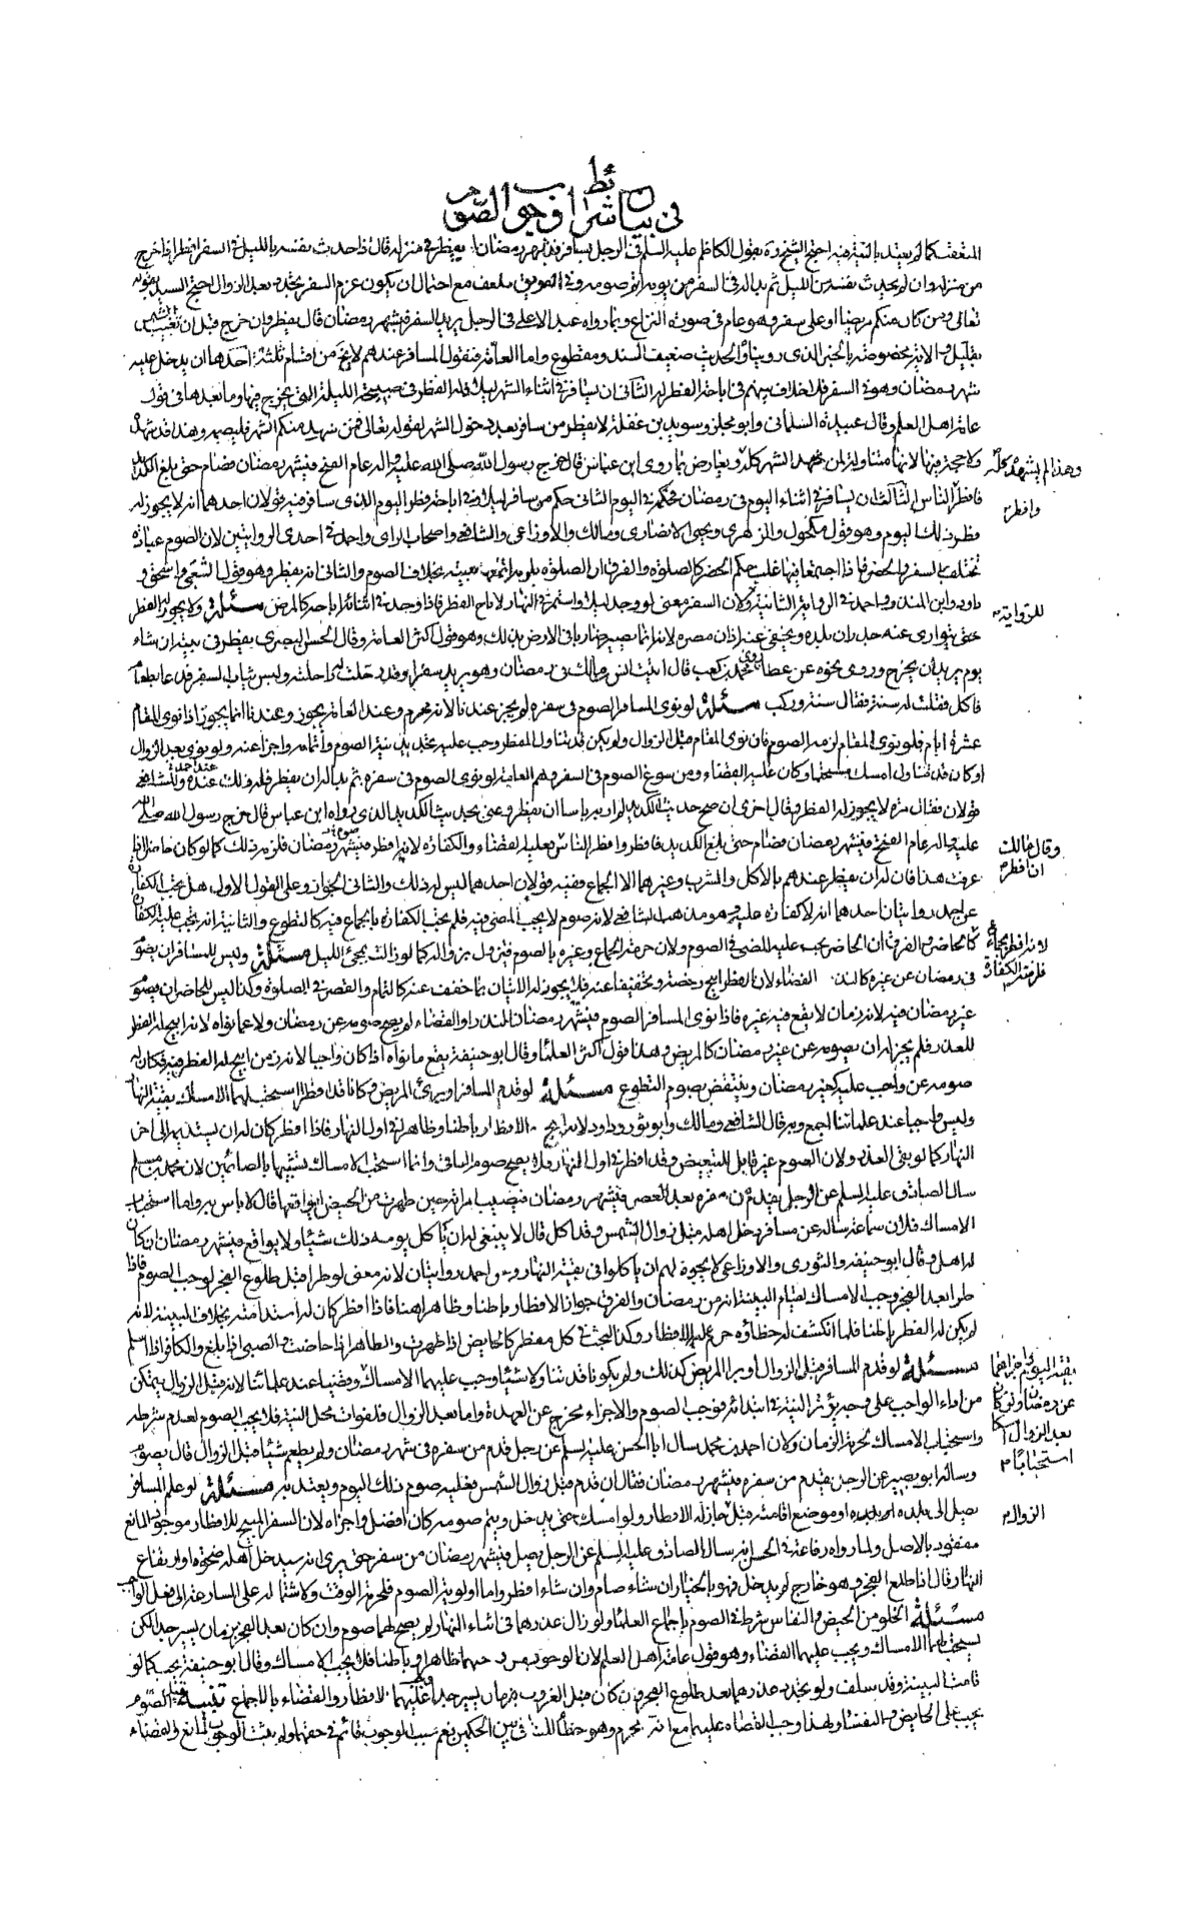 في بيان شرائط وجوب الصوم
المشقة كما لم يعتد بالنية فيه احتج الشيخ ره بقول الكاظم عليه السلم في الرجل يسافر في شهر رمضان ايفطر في منزله قال اذا حدث نفسه بالليل في السفر افطر اذا خرج
من منزله وان لم يحدث نفسه من الليل ثم بدا له في السفر من يومه اتم صومه وفي الطريق ضعف مع احتمال ان يكون عزم السفر تجدد بعد الزوال احتج السيد بقوله
تعالى ومن كان منكم مريضا او على سفر وهو عام في صورة النزاع وبما رواه عبد الاعلى في الرجل يريد السفر في شهر رمضان قال يفطر وان خرج قبل ان تغيب الشمس
بقليل والاية مخصوصة بالخبر الذي رويناه والحديث ضعيف السند ومقطوع واما العامة فنقول المسافر عندهم لا يخ من اقسام ثلثة احدها ان يدخل عليه
شهر رمضان وهو في السفر فلا خلاف بينهم في اباحة الفطر له الثاني ان يسافر في اثناء الشهر ليلا فله الفطر في صبيحة الليلة التي يخرج فيها وما بعدها في قول
عامة اهل العلم وقال عبيدة السلماني وابو مجلز وسويد بن غفلة لا يفطر من سافر بعد دخول الشهر لقوله تعالى فمن شهد منكم الشهر فليصمه وهذا قد شهده
ولا حجة فيها لانها متناولة لمن شهد الشهر كله وهذا لم يشهد كله ويعارض بما روى ابن عباس قال خرج رسول الله صلى الله عليه واله عام الفتح في شهر رمضان فصام حتى بلغ الكديد
وافطر
فافطر الناس الثالث ان يسافر في اثناء اليوم في رمضان فحكمه في اليوم الثاني حكم من سافر ليلا وفي اباحة فطر اليوم الذي سافر فيه قولان احدهما انه لا يجوز له
فطر ذلك اليوم وهو قول مكحول والزهري ويحيى الانصاري ومالك والاوزاعي والشافعي واصحاب الراي واحمد في احدى الروايتين لان الصوم عبادة
تختلف بالسفر والحضر فاذا اجتمعا فيها غلب حكم الحضر كالصلوة والفرق ان الصلوة يلزم اتمامها بنيته بخلاف الصوم والثاني انه يفطر وهو قول الشعبي واسحق و
داود وابن المنذر واحمد في الرواية الثانية للرواية ولان السفر معنى لو وجد ليلا واستمر في النهار لاباح الفطر فاذا وجد في اثنائه اباحه كالمرض مسئلة ولا يجوز له الفطر
حتى يتوارى عنه جدران بلده ويخفى عنه اذان مصره لانه انما يصير ضاربا في الارض بذلك وهو قول اكثر العامة وقال الحسن البصري يفطر في بيته ان شاء
يوم يريد ان يخرج وروى نحوه عن عطا روى محمد بن كعب قال اتيت انس بن مالك في رمضان وهو يريد سفرا وقد رحلت له راحلته ولبس ثياب السفر فدعا بطعام
فاكل فقلت له سنة فقال سنة وركب مسئلة لو نوى المسافر الصوم في سفره لم يجز عندنا لانه محرم وعند العامة يجوز وعندنا انما يجوز اذا نوى المقام
عشرة ايام فلو نوى المقام لزمه الصوم فان نوى المقام قبل الزوال ولم يكن قد تناول المفطر وجب عليه تجديد نية الصوم واتمامه واجزأ عنه ولو نوى بعد الزوال
او كان قد تناول امسك مستحبا وكان عليه القضاء ومن سوغ الصوم في السفر وهم العامة لو نوى الصوم في سفره ثم بدا له ان يفطر فله ذلك عند احمد وللشافعي
قولان فقال مرة لا يجوز له الفطر وقال اخرى ان صح حديث الكديد لم ار به باسا ان يفطر وعنى بحديث الكديد الذي رواه ابن عباس قال خرج رسول الله صلى الله
عليه واله عام الفتح في شهر رمضان فصام حتى بلغ الكديد فافطر وافطر الناس وقال مالك ان افطر فعليه القضاء والكفارة لانه افطر في صوم شهر رمضان فلزمه ذلك كما لو كان حاضرا اذا
عرفت هذا فان له ان يفطر عندهم بالاكل والشرب وغيرهما الا الجماع وفيه قولان احدهما ليس له ذلك والثاني الجواز وعلى القول الاول هل تجب الكفارة
عن احمد روايتان احدهما انه لا كفارة عليه وهو مذهب الشافعي لانه صوم لا يجب المضي فيه فلم تجب الكفارة بالجماع فيه كالتطوع والثانية انه يجب عليه الكفارة
لانه افطر بجماع فلزمته الكفارة كالحاضر والفرق ان الحاضر يجب عليه المضي في الصوم ولان حرمة الجماع وغيره بالصوم فتزول بزواله كما لو زالت بمجئ الليل مسئلة وليس للمسافر ان يصوم
في رمضان عن غيره كالنذر والقضاء لان الفطر ابيح رخصة وتخفيفا عنه فلا يجوز له الاتيان بما خفف عنه كالتمام والقصر في الصلوة وكذا ليس للحاضر ان يصوم
غير رمضان فيه لانه زمان لا يقع فيه غيره فاذا نوى المسافر الصوم في شهر رمضان النذر او القضاء لم يصح صومه عن رمضان ولا عما نواه لانه ابيح له الفطر
للعذر فلم يجز له ان يصومه عن غير رمضان كالمريض وهذا قول اكثر العلماء وقال ابو حنيفة يقع ما نواه اذا كان واجبا لانه زمن ابيح له الفطر فيه فكان له
صومه عن واجب عليه كغير رمضان وينتقض بصوم التطوع مسئلة لو قدم المسافر او برئ المريض وكانا قد افطرا استحب لهما الامساك بقية النهار
وليس واجبا عند علمائنا اجمع وبه قال الشافعي ومالك وابو ثور وداود لانه ابيح له الافطار باطنا وظاهرا في اول النهار فاذا افطر كان له ان يستديم الى اخر
النهار كما لو بقي العذر ولان الصوم غير قابل للتبعيض وقد افطر في اول النهار فلا يصح صوم الباقي وانما استحب الامساك تشبها بالصائمين لان محمد بن مسلم
سال الصادق عليه السلم عن الرجل يقدم من سفره بعد العصر في شهر رمضان فيصيب امراته حين طهرت من الحيض ايواقعها قال لا باس به واما استحباب
الامساك فلان سماعة ساله عن مسافر دخل اهله قبل زوال الشمس وقد اكل قال لا ينبغي له ان ياكل يومه ذلك شيئا ولا يواقع في شهر رمضان ان كان
له اهل وقال ابو حنيفة والثوري والاوزاعي لا يجوز لهم ان ياكلوا في بقية النهار وعن احمد روايتان لانه معنى لو طرا قبل طلوع الفجر لوجب الصوم فاذا
طرا بعد الفجر وجب الامساك لقيام البينة انه من رمضان والفرق جواز الافطار باطنا وظاهرا هنا فاذا افطر كان له استدامته بخلاف البينة لانه
لم يكن له الفطر باطنا فلما انكشف له خطاؤه حرم عليه الافطار وكذا البحث في كل مفطر كالحايض اذا طهرت والطاهر اذا حاضت والصبي اذا بلغ والكافر اذا اسلم
مسئلة لو قدم المسافر قبل الزوال او برا المريض كذلك ولم يكونا قد تناولا شيئا وجب عليهما الامساك بقية اليوم واجزاهما عن رمضان ولو كان بعد الزوال امسكا استحبابا وقضيا عند علمائنا لانه قبل الزوال يتمكن
من اداء الواجب على وجه يؤثر النية في ابتدائه فوجب الصوم والاجزاء مخرج عن العهدة واما بعد الزوال فلفوات محل النية فلا يجب الصوم لعدم شرطه
واستحباب الامساك لحرمة الزمان وكان احمد بن محمد سال ابا الحسن عليه السلم عن رجل قدم من سفره في شهر رمضان ولم يطعم شيئا قبل الزوال قال يصوم
وساله ابو بصير عن الرجل يقدم من سفره في شهر رمضان فقال ان قدم قبل زوال الشمس فعليه صوم ذلك اليوم ويعتد به مسئلة لو علم المسافر
يصل الى بلده او موضع اقامته قبل الزوال جاز له الافطار ولو امسك حتى يدخل ويتم صومه كان افضل واجزاه لان السفر المبيح للافطار موجود والمانع
مفقود بالاصل ولما رواه رفاعة في الحسن انه سال الصادق عليه السلم عن الرجل يصل في شهر رمضان من سفر حتى يرى انه سيدخل اهله ضحوة او ارتفاع
النهار قال اذا طلع الفجر وهو خارج لم يدخل فهو بالخيار ان شاء صام وان شاء افطر واما اولوية الصوم فلحرمة الوقت ولاشتماله على المسارعة الى فعل الواجب
مسئلة الخلو من الحيض والنفاس شرط في الصوم باجماع العلماء ولو زال عذرهما في اثناء النهار لم يصح لهما صوم وان كان بعد الفجر بزمان يسير جدا لكن
يستحب لهما الامساك ويجب عليهما القضاء وهو قول عامة اهل العلم لان الوجوب سقط عنهما ظاهرا وباطنا فلا يجب الامساك وقال ابو حنيفة يجب كما لو
قامت البينة وقد سلف ولو تجدد عذرهما بعد طلوع الفجر وان كان قبل الغروب بزمان يسير جدا وجب عليهما الافطار والقضاء بالاجماع تنبيه قيل الصوم
يجب على الحايض والنفساء ولهذا وجب القضاء عليهما مع انه محرم وهو خطأ للتنافي بين الحكمين نعم سبب الوجوب قائم في حقهما ولم يثبت الوجوب للمانع والقضاء